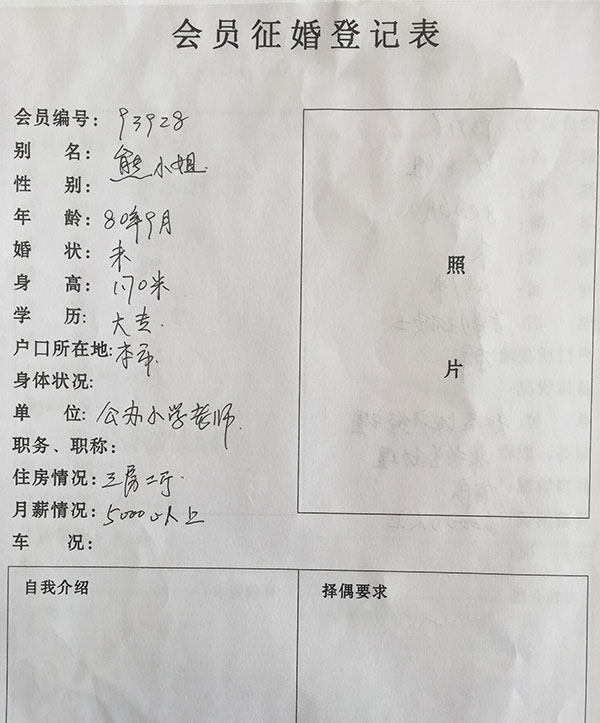 会员征婚登记表
会员编号: 93928
别 名: 熊小姐.
性 别:
年 龄: 80年9月
婚 状: 未
身 高: 1.70米
学 历: 大专.
户口所在地: 本市.
身体状况:
单 位: 公办小学老师.
职务、职称:
住房情况: 三房二厅
月薪情况: 5000以上
车 况:
照
片
自我介绍
择偶要求